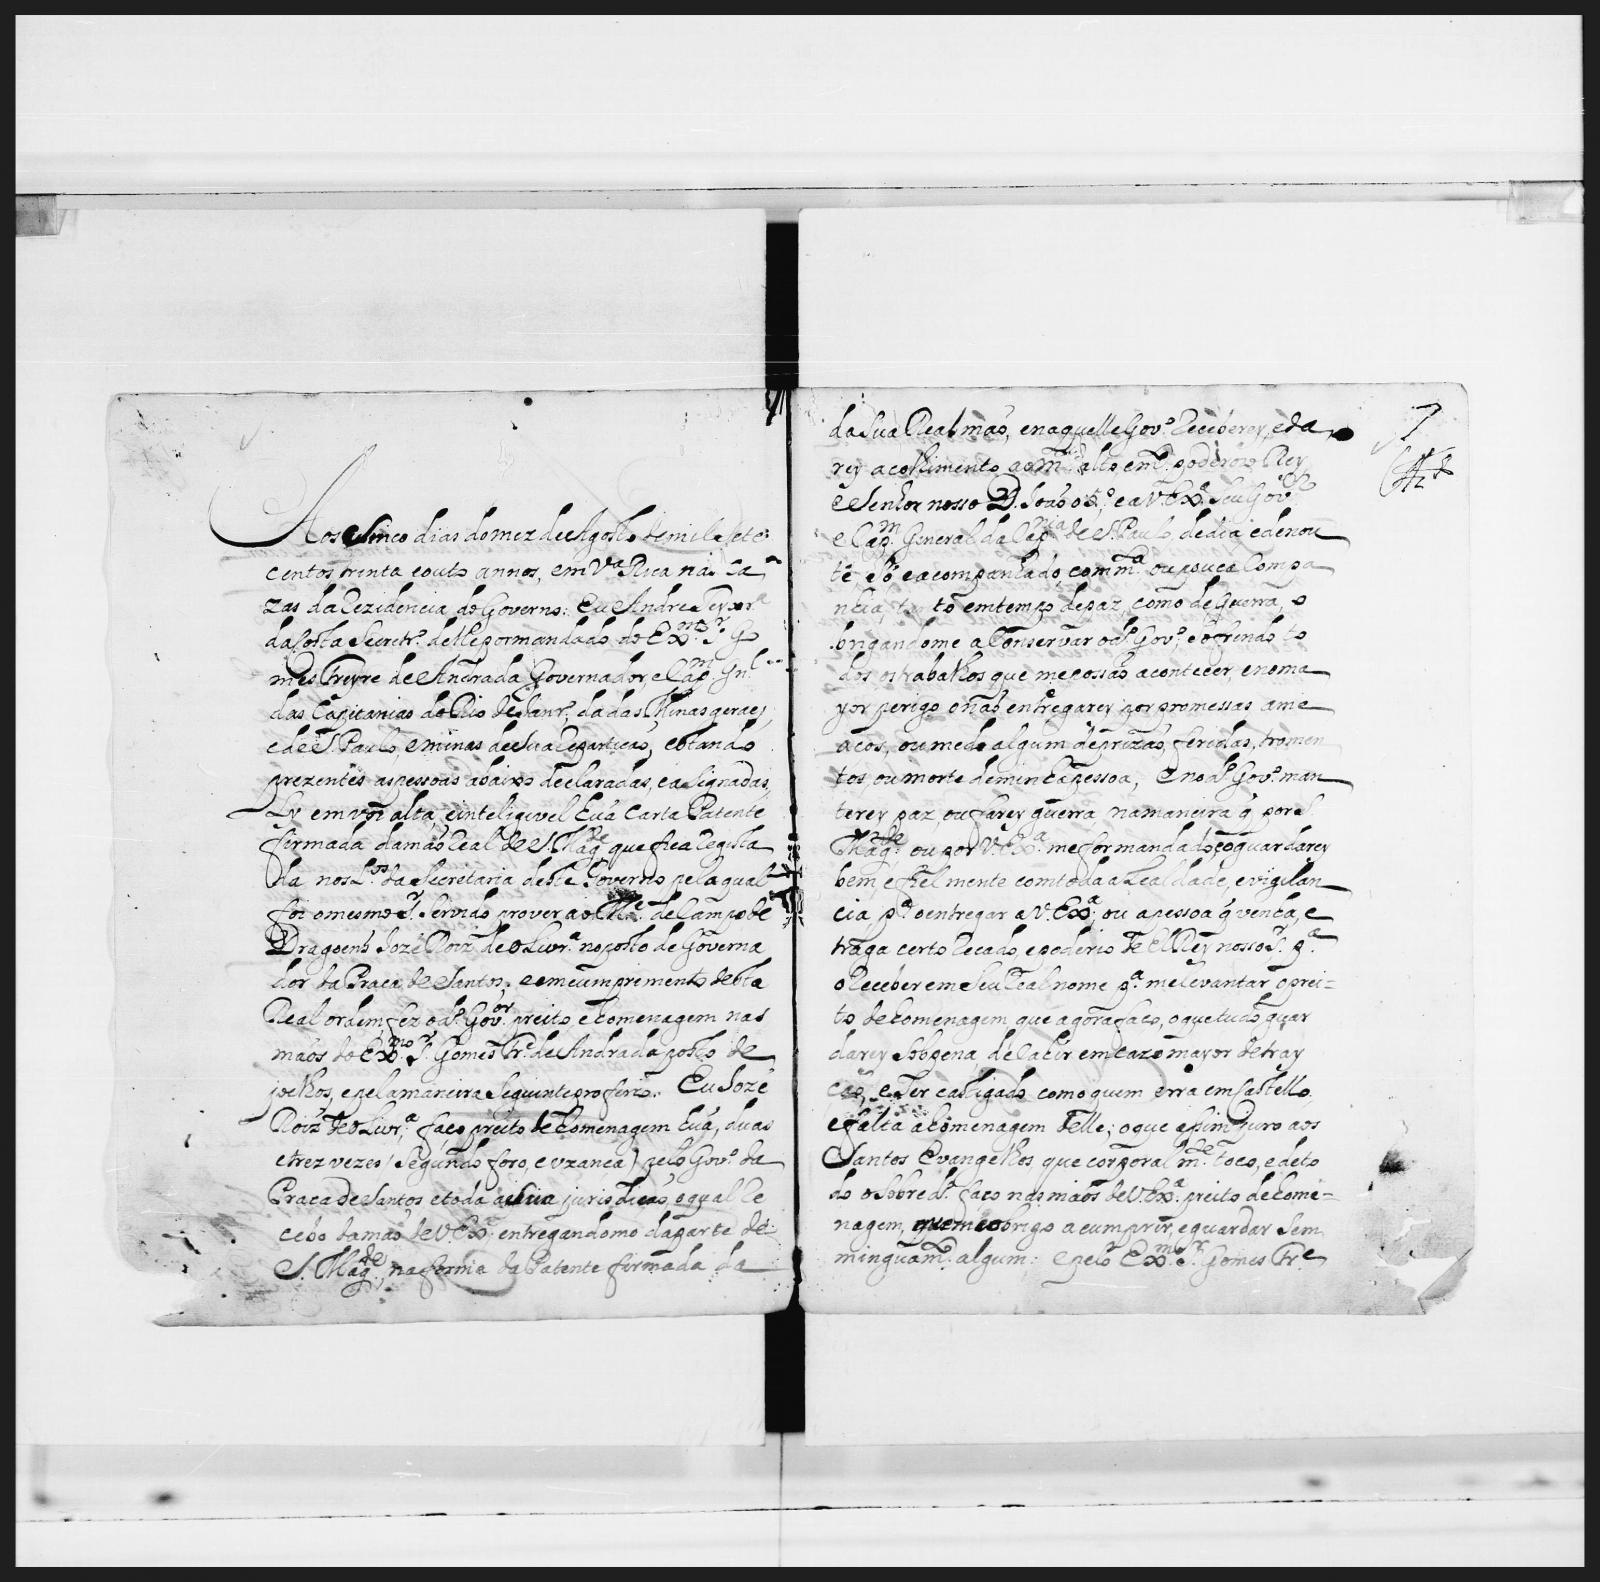 Aos Sinco dias do mez de Agosto de mil e sete
centos trinta e outo annos, em V.ª Rica nas Ca
zas da Rezidencia do Governo: Eu Andre Teyxr.ª
da Costa Secretr.º delle por mandado do Ex.mo S.r Go
mes Freyre de Andrada Governador, e Cap.m Gn.l
das Capitanias do Rio de Janr.º, da das Minas geraes,
e de S. Paulo, e minas de sua Repartição, estando
prezentes as pessoas abaixo declaradas, e asignadas,
Ly em vós alta, e inteligivel hũa Carta Patente
firmada da mão Real de S. Mag.de que fica Regista
da nos L.os da Secretaria deste Governo pela qual
foi o mesmo S.r Servido prover ao M.e de Campo de
Dragoens Jozé Roiz' de oLivr.ª no posto de Governa
dor da Praça de Santos; e em cumprimento desta
Real ordem, fez o d.º Gov.or preito, e homenagem nas
mãos do Ex.mo S.r Gomes Fr.e de Andrada posto de
joelhos, e pela maneira Seguinte proferio. Eu Jozé
Roiz' de oLivr.ª faço preito de homenagem hũa, duas
e trez vezes (Segundo foro, e uzança) pelo Gov.º da
Praça de Santos e toda a Sua jurisdição, o qual Re
cebo da mão de V. Ex.ª entregandomo da parte de
S. Mag.de, na forma da Patente firmada da
da Sua Real mão, e naquelle Gov.º Receberey, e da
rey acolhimento ao m.to alto e m.to poderozo Rey,
e Senhor nosso D. João o 5.º e a V. Ex.ª Seu Gov.or
e Cap.m General da Cap.nia de S. Paulo, de dia e de nou
te, Só e acompanhado, com m.ta ou pouca Compa
nhia, tanto em tempo de paz, como de Guerra, o
brigandome a Conservar o d.º Gov.º, Sofrendo to
dos os trabalhos que me possão acontecer, e no ma
yor perigo o não entregarey por promessas ame
aços, ou medo algum de prizão, feridas, tromen
tos, ou morte de minha pessoa, e no d.º Gov.º man
terey paz, ou farey guerra, na maneira q̃ por S.
Mag.de ou por V. Ex.ª me for mandado; o guardarey
bem, e fiel mente com toda a Lealdade, e vigilan
cia p.ª o entregar a V. Ex.ª, ou a pessoa q̃ venha, e
traga certo Recado, e poderio de El Rey nosso S.r p.ª
o Receber em Seu Real nome p.ª me levantar o prei=
to de homenagem que agora faço, o que tudo guar
darey Sob pena de Cahir em cazo mayor de tray
ção, e Ser castigado como quem erra em Castello,
e falta a homenagem delle; o que asim juro aos
Santos Evangelhos, que corporal m.te toco, e deto
do o Sobred.º faço nas mãos de V. Ex.ª preito de home=
nagem, que me obrigo a cumprir, e guardar Sem
minguam.to algum: e pelo Ex.mo S.r Gomes Fr.e